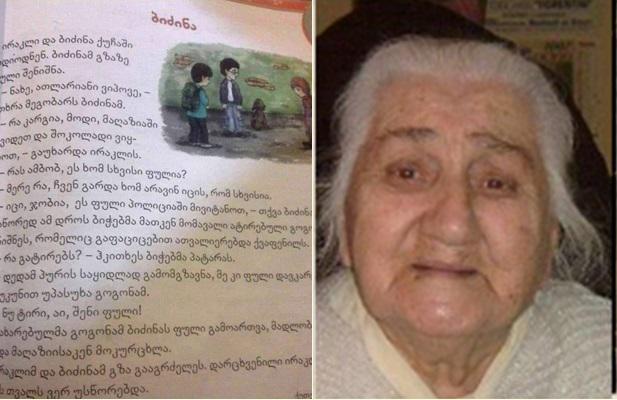 ბიძინა
ირაკლი და ბიძინა ქუჩაში
დიოდნენ. ბიძინამ გზაზე
ული შენიშნა.
– ნახე, ათლარიანი ვიპოვე, –
თხრა მეგობარს ბიძინამ.
– რა კარგია, მოდი, მაღაზიაში
ვიდეთ და შოკოლადი ვიყ-
ოთ, – გაუხარდა ირაკლის.
– რას ამბობ, ეს ხომ სხვისი ფულია?
– მერე რა, ჩვენ გარდა ხომ არავინ იცის, რომ სხვისია.
– იცი, ჯობია, ეს ფული პოლიციაში მივიტანოთ, – თქვა ბიძინა
სწორედ ამ დროს ბიჭებმა მათკენ მომავალი ატირებული გოგო
ნიშნეს, რომელიც გაფაციცებით ათვალიერებდა ქვაფენილს.
რა გატირებს? – ჰკითხეს ბიჭებმა პატარას.
დედამ პურის საყიდლად გამომგზავნა, მე კი ფული დავკარ
უკუნით უპასუხა გოგონამ.
ნუ ტირი, აი, შენი ფული!
ახარებულმა გოგონამ ბიძინას ფული გამოართვა, მადლობ
და მაღაზიისაკენ მოკურცხლა.
რაკლიმ და ბიძინამ გზა გააგრძელეს. დარცხვენილი ირაკ
ს თვალს ვერ უსწორებდა.